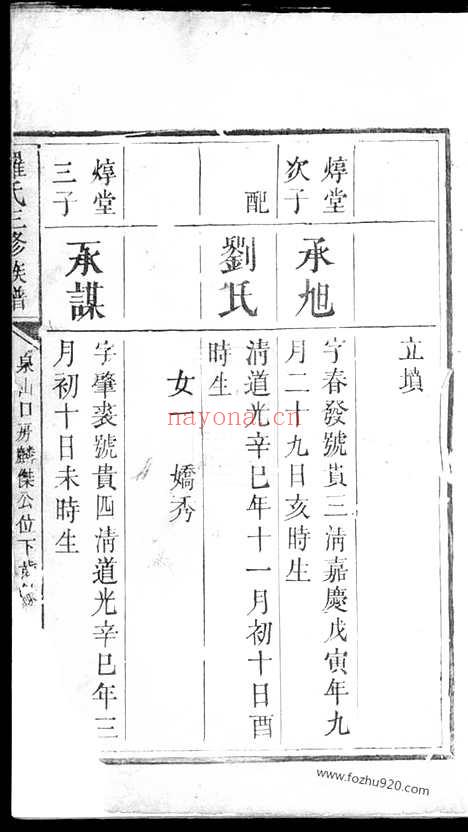 立墳
焞堂
次子
承旭
字春發號貢三清嘉慶戊寅年九
月二十九日亥時生
配
劉氏
清道光辛巳年十一月初十日酉
時生
女一 嬌秀
焞堂
三子
承謀
字肇裘號貴四清道光辛巳年三
月初十日未時生
羅氏三修族譜
泉山口房麟傑公位下
nayona.cn
www.fozhu920.com